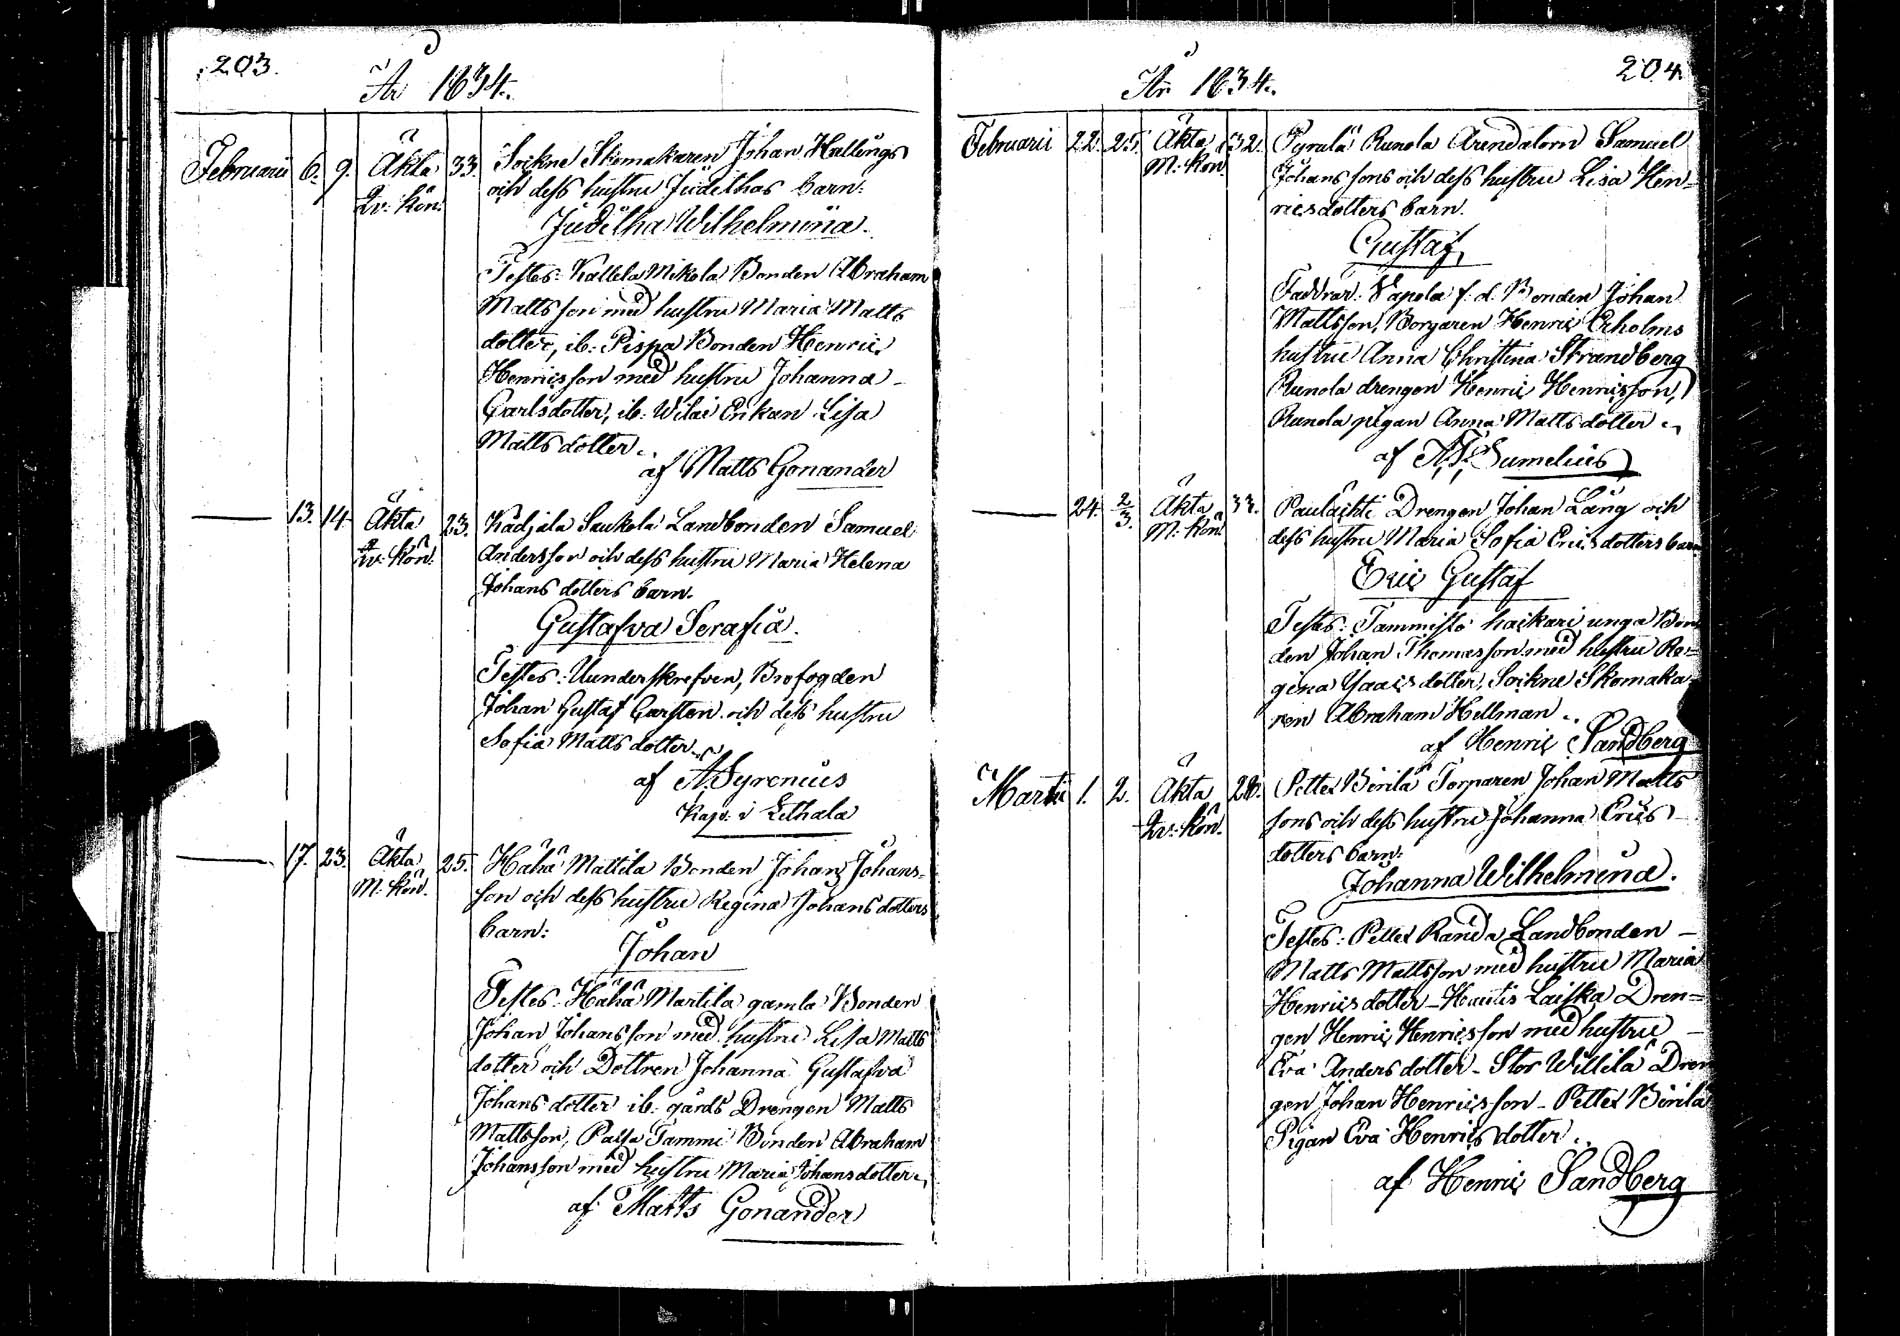 203.
År 1834.
Februarii 6. 9. Äkta 33. Sockne Skomakaren Johan Hallings
Qv: Kön. och dess hustru Judithas barn:
Juditha Wilhelmina.
Testes: Kallela Mikola Bonden Abraham
Mattsson med hustru Maria Matts
dotter, ib: Pispa Bonden Henric
Henricsson med hustru Johanna
Carlsdotter, ib: Enkan Lisa
Matts dotter.
af Matts Gonander
13. 14. Äkta 23. Kädjälä Saukola Landbonden Samuel
Qv: Kön. Andersson och dess hustru Maria Helena
Johans dotters barn.
Gustafva Serafia.
Testes: Uunderskrefven, Brofogden
Johan Gustaf Garsten och dess hustru
Sofia Matts dotter.
af A. Syrenius
Kap: i Lethala
17. 23. Äkta 25. Hähä Mattila Bonden Johan Johans=
M: Kön. son och dess hustru Regina Johans dotters
barn:
Johan
Testes: Hähä Martila gamla Bonden
Johan Johansson med hustru Lisa Matts
dotter och Dottren Johanna Gustafva
Johans dotter ib: gårds Drengen Matts
Mattsson, Tammi Bonden Abraham
Johansson med hustru Maria Johansdotter.
af Matts Gonander
204.
År 1834.
Februarii 22. 25. Äkta 32. Pyrälä Runola Arendatorn Samuel
M: Kön. Johans sons och dess hustru Lisa Hen=
ricsdotters barn.
Gustaf,
Faddrar: Vapola f. d. Bonden Johan
Mattsson, Borgaren Henric Erholms
hustru Anna Christina Strandberg
Runola drengen Henric Henricsson,
Runola pigan Anna Matts dotter.
af Sumelius
24. 2/3. Äkta 33. Drengen Johan Lång och
M: Kön. dess hustru Maria Sofia Erics dotters barn
Eric Gustaf
Testes: Tammisto haikari unga Bon
den Johan Thomasson med hustru Re=
gina Ysaacs dotter, Sockne Skomaka
ren Abraham Hellman.
af Henric Sandberg
Martii 1. 2. Äkta 28. Petter Birilä Torparen Johan Matts
Qv: Kön. sons och dess hustru Johanna Erics
dotters barn:
Johanna Wilhelmina.
Testes: Petter Landbonden
Matts Mattsson med hustru Maria
Henrics dotter - Laiska Dren=
gen Henric Henricsson med hustru
Eva Anders dotter - Stor Willilä Dren
gen Johan Henricsson - Petter Birilä
Pigan Eva Henrics dotter.
af Henric Sandberg